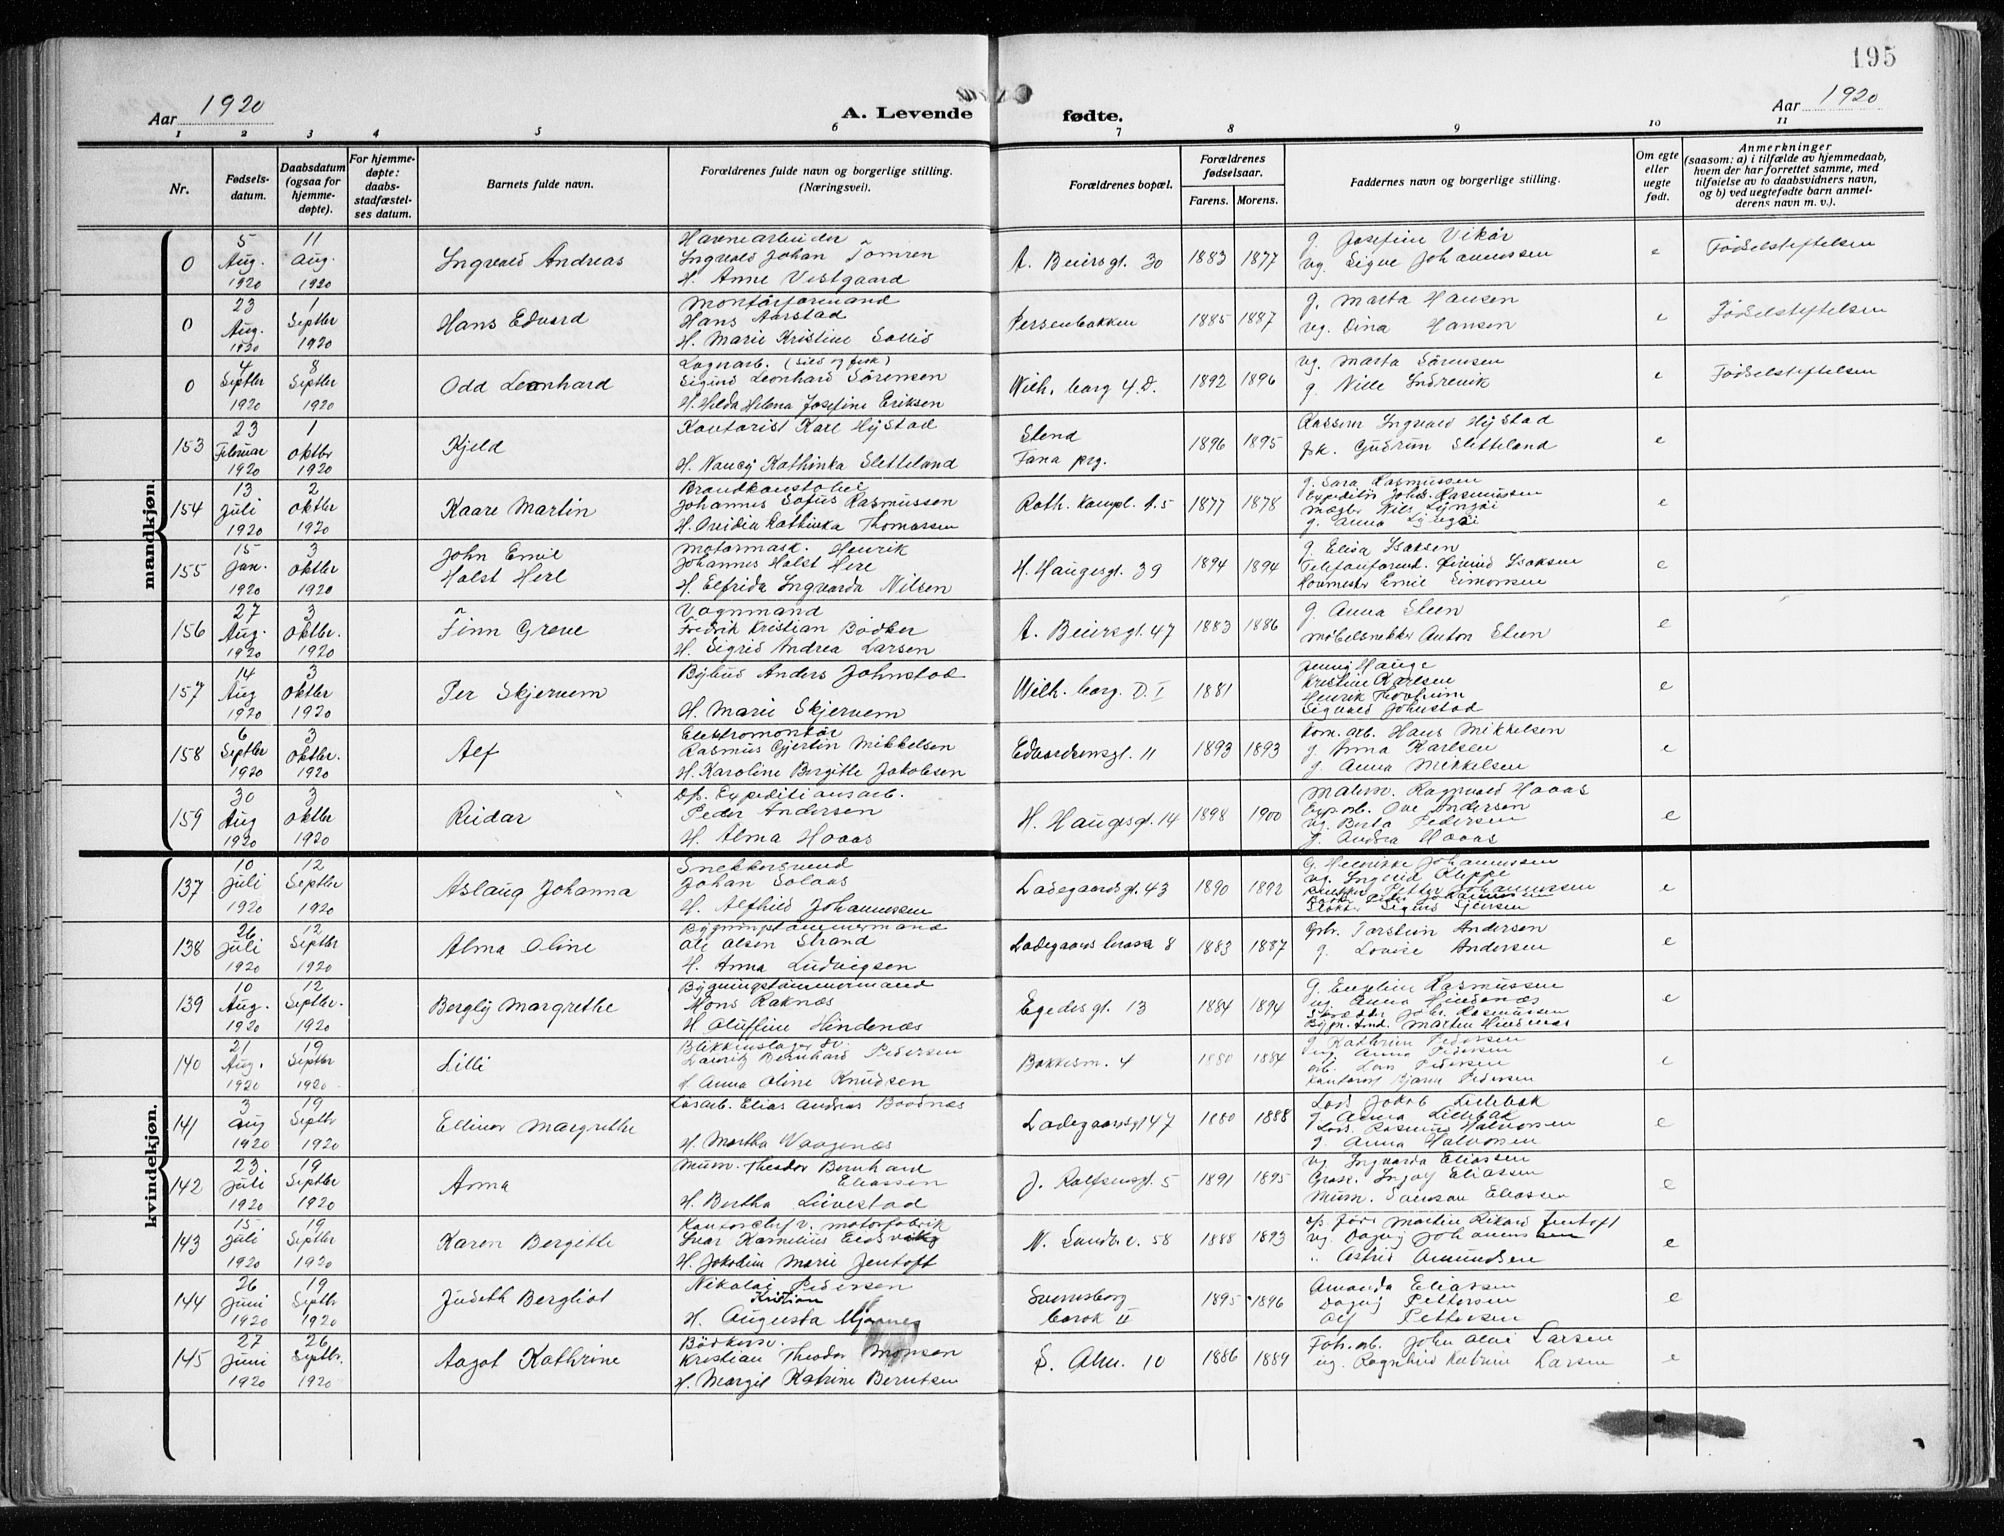 195
Aar 1920
A. Levende fødte.
Aar 1920
1 2 3 4 5 6 7 8 9 10 11
Nr.
Fødsels-
datum.
Daabsdatum
(ogsaa for
hjemme-
døpte).
For hjemme-
døpte:
daabs-
stadfæstel-
ses datum.
Barnets fulde navn.
Forældrenes fulde navn og borgerlige stilling.
(Næringsvei).
Forældrenes bopæl.
Forældrenes
fødselsaar.
Farens. Morens.
Faddernes navn og borgerlige stilling.
Om egte
eller
uegte
født.
Anmerkninger
(saasom: a) i tilfælde av hjemmedaab,
hvem der har forrettet samme, med
tilføielse av to daabsvidners navn,
og b) ved uegtefødte barn anmel-
derens navn m. v.).
mandkjøn.
0
5 Aug. 1920
11 Aug. 1920
Ingvald Andreas
Havnearbeider
Ingvald Johan Tomren
H. Anne Vestgaard
A. Beiersgt. 30
1883 1877
g. Josefine Vikør
ug. Signe Johannessen
e
Fødselstiftelsen
0
23 Aug. 1920
1 Septbr 1920
Hans Edvard
Montørformand
Hans Aarstad
H. Marie Kristine Sollid
Persenbakken
1885 1887
g. Marta Hansen
ug. Dina Hansen
e
Fødselstiftelsen
0
4 Septbr 1920
8 Septbr 1920
Odd Leonhard
Lagerarb. (Sild og fisk)
Sigurd Leonhard Sørensen
H. Hilda Helena Josefine Eriksen
Wilh. borg 4. D.
1892 1896
ug. Marta Sørensen
g. Nille Indrevik
e
Fødselstiftelsen
153
23 Februar 1920
1 Oktbr 1920
Kjeld
Kontorist Karl Hystad
H. Nancy Kathinka Sletteland
Stend
Fana prg.
1896 1895
Kasserer Ingvald Hystad
frk. Gudrun Sletteland
e
154
13 Juli 1920
2 Oktbr 1920
Kaare Martin
Brandkonstabel
Johannes Sofus Rasmussen
H. Ovidia Kathinka Thomassen
Roth. kampl. A. 5
1877 1878
g. Sara Rasmussen
Expeditør Johs. Rasmussen
Mægler Nils Lyngøi
g. Anna Lyngøi
e
155
15 Jan. 1920
3 Oktbr 1920
John Emil
Holst Herl
Motormask. Henrik
Johannes Holst Herl
H. Elfrida Ingvarda Nilsen
H. Haugesgt. 39
1894 1894
g. Elisa Isaksen
Telefonformd. Isaksen
Hovmester Emil Simonsen
e
156
27 Aug. 1920
3 Oktbr. 1920
Finn Greve
Vognmand
Fredrik Kristian Bødker
H. Sigrid Andrea Larsen
A. Beiersgt. 47
1883 1886
g. Anna Steen
Møbelsnekker Anton Steen
e
157
14 Aug 1920
3 Oktbr 1920
Per Skjervem
Bybud Anders Johnstad
H. Marie Skjervem
Wilh. borg. D. I
1881
Jenny Hauge
Kristine Karlsen
Henrik
Sigvald Johnstad
e
158
6 Septbr 1920
3 Oktbr. 1920
Alf
Elektromontør
Rasmus Gjertin Mikkelsen
H. Karoline Bergitte Jakobsen
Edvardsensgt. 11
1893 1893
Kom. arb. Hans Mikkelsen
g. Anna Karlsen
g. Anna Mikkelsen
e
159
30 Aug 1920
3 Oktbr 1920
Reidar
Ds. Expeditionsarb.
Peder Andersen
H. Alma Haaas
H. Haugesgt. 14
1898 1900
Malerm. Ragnvald Haaas
Exp. arb. Ove Andersen
ug. Berta Pedersen
g. Andrea Haaas
e
kvindekjøn.
137
10 Juli 1920
12 Septbr 1920
Aslaug Johanna
Snekkersvend
Johan Solaas
H. Alfhild Johannessen
Ladegaardsgt. 43
1890 1892
g. Henrikke Johannessen
ug. Ingerid Kleppe
Snekker Petter Johannessen
e
138
26 Juli 1920
12 Septbr 1920
Alma Oline
Bygningstømmermand
Ole Olsen Strand
H. Anna Ludvigsen
Ladegaards terasse 8
1883 1887
Grb. Torstein Andersen
g. Lovise Andersen
e
139
10 Aug. 1920
12 Septbr. 1920
Bergly Margrethe
Bygningstømmermand
Mons Raknæs
H. Oluffine Hindenæs
Egedesgt. 13
1884 1894
g. Engeline Rasmussen
ug. Anna Hindenæs
Skrædder Joh. Rasmussen
Martin Hindenæs
e
140
21 Aug. 1920
19 Septbr 1920
Lilli
Blikkenslager sv.
Lauritz Bernhard Pedersen
H. Anna Oline Knudsen
Bakkesm. 4
1880 1884
g. Kathrine Pedersen
ug. Anna Pedersen
arb. Lars Pedersen
Kontorist Bjarne Pedersen
e
141
3 Aug 1920
19 Septbr 1920
Ellinor Margrethe
Løsarb. Elias Andreas Boodnæs
H. Martha Vaagenæs
Ladegaardsgt 47
1880 1888
Lods Jakob Lillebak
g. Anna Lillebak
Lods. Rasmus Halvorsen
g. Anna Halvorsen
e
142
23. Juli 1920
19 Septbr 1920
Anna
Murm. Theodor Bernhard
Eliassen
H. Bertha Leivestad
J. Rolfsensgt. 5
1891 1895
ug Ingvarda Eliassen
Gros. Ingolf Eliassen
Murm. Samson Eliassen
e
143
15 Juli 1920
19 Septbr 1920
Karen Bergitte
Kontorchef v. motorfabrik
Ivar Kornelius Eidsvåg
H. Jakobine Marie Jentoft
N. Sandsv. 58
1888 1893
Martin Rikard Jentoft
ug. Dagny Johannessen
" Astrid Amundsen
e
144
26 Juni 1920
19 Septbr 1920
Judith Bergliot
Nikolai Pedersen
Kristian
H. Augusta Mjaanes
Sverresborg
barak II
1895 1896
Amanda Eliassen
Dagny Pettersen
Alf Pettersen
e
145
27 Juni 1920
26 Septbr. 1920
Aagot Kathrine
Bødkersv.
Kristian Theodor Monsen
H. Margit Katrine Berntsen
S. Alm. 10
1886 1889
Fab. arb. John Olai Larsen
ug. Ragnhild Katrine Larsen
e